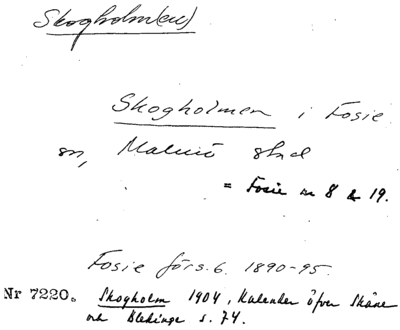 Skogholm(en)
Skogholmen i Fosie
sn, Malmö stad
= Fosie nr 8 & 19.
Fosie förs.b. 1890-95.
Nr 7220. Skogholm 1904, Kalender öfver Skåne
och Blekinge s. 74.